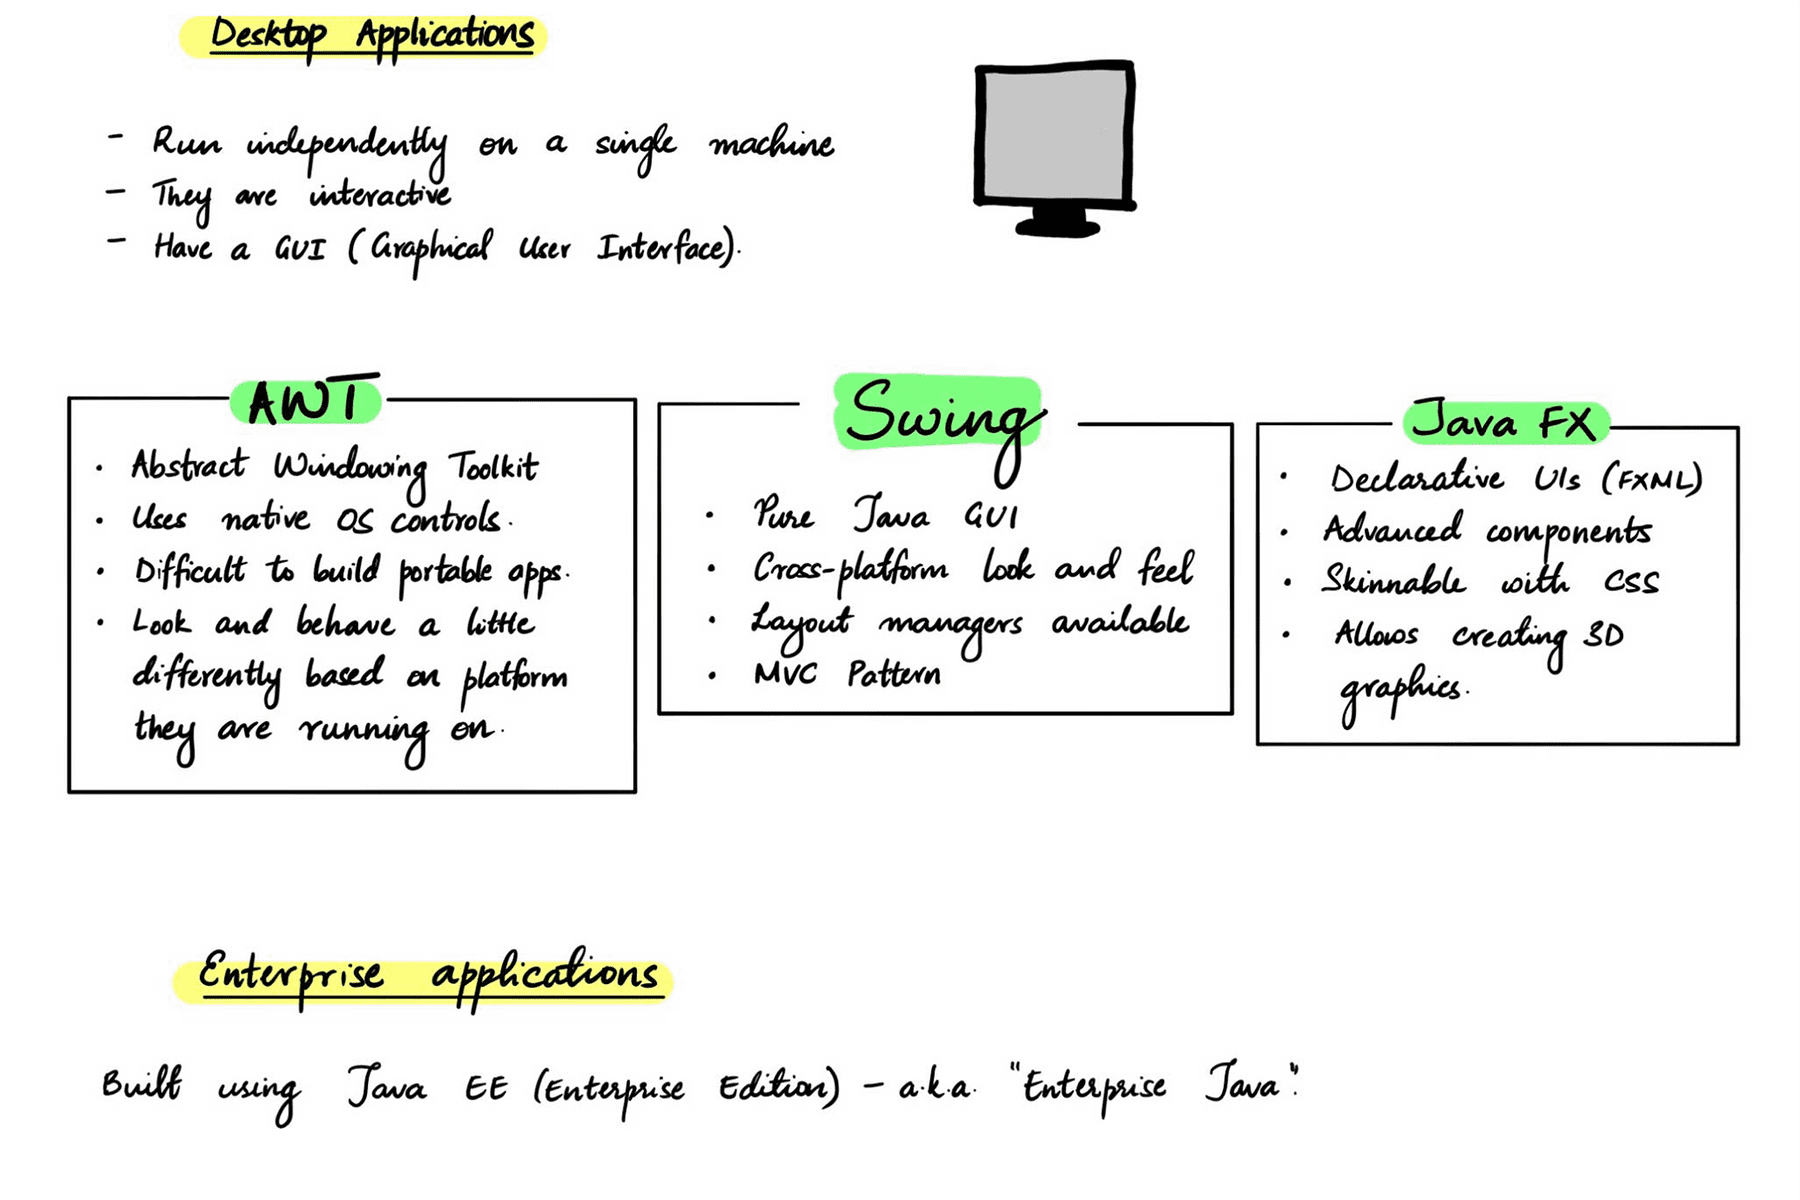 Desktop Applications
- Run independently on a single machine
- They are interactive
- Have a GUI (Graphical User Interface).
AWT
• Abstract Windowing Toolkit
• Uses native OS controls.
• Difficult to build portable apps.
• Look and behave a little
differently based on platform
they are running on.
Swing
• Pure Java GUI
• Cross-platform look and feel
• Layout managers available
• MVC Pattern
Java FX
• Declarative UIs (FXML)
• Advanced components
• Skinnable with CSS
• Allows creating 3D
graphics.
Enterprise applications
Built using Java EE (Enterprise Edition) - a.k.a. "Enterprise Java".